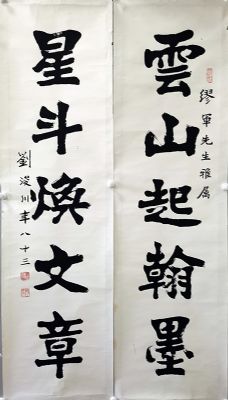 雲山起翰墨
繆軍先生雅屬
星斗煥文章
劉浚川年八十三